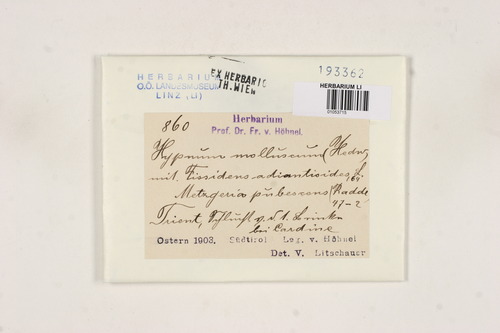 HERBARIUM
O.Ö. LANDESMUSEUM
LINZ, (LI)
EX HERBARIO
TH. WIEN
193362
HERBARIUM LI
860
Herbarium
Prof. Dr. Fr. v. Höhnel.
Hypnum molluscum (Hedw.
mit. Fissidens adiantioides
Metzgeria pubescens (Radde
17-2
Trient, Schluft v. d.
bei Cardine
Ostern 1903. Südtirol Leg. v. Höhnel
Det. V. Litschauer